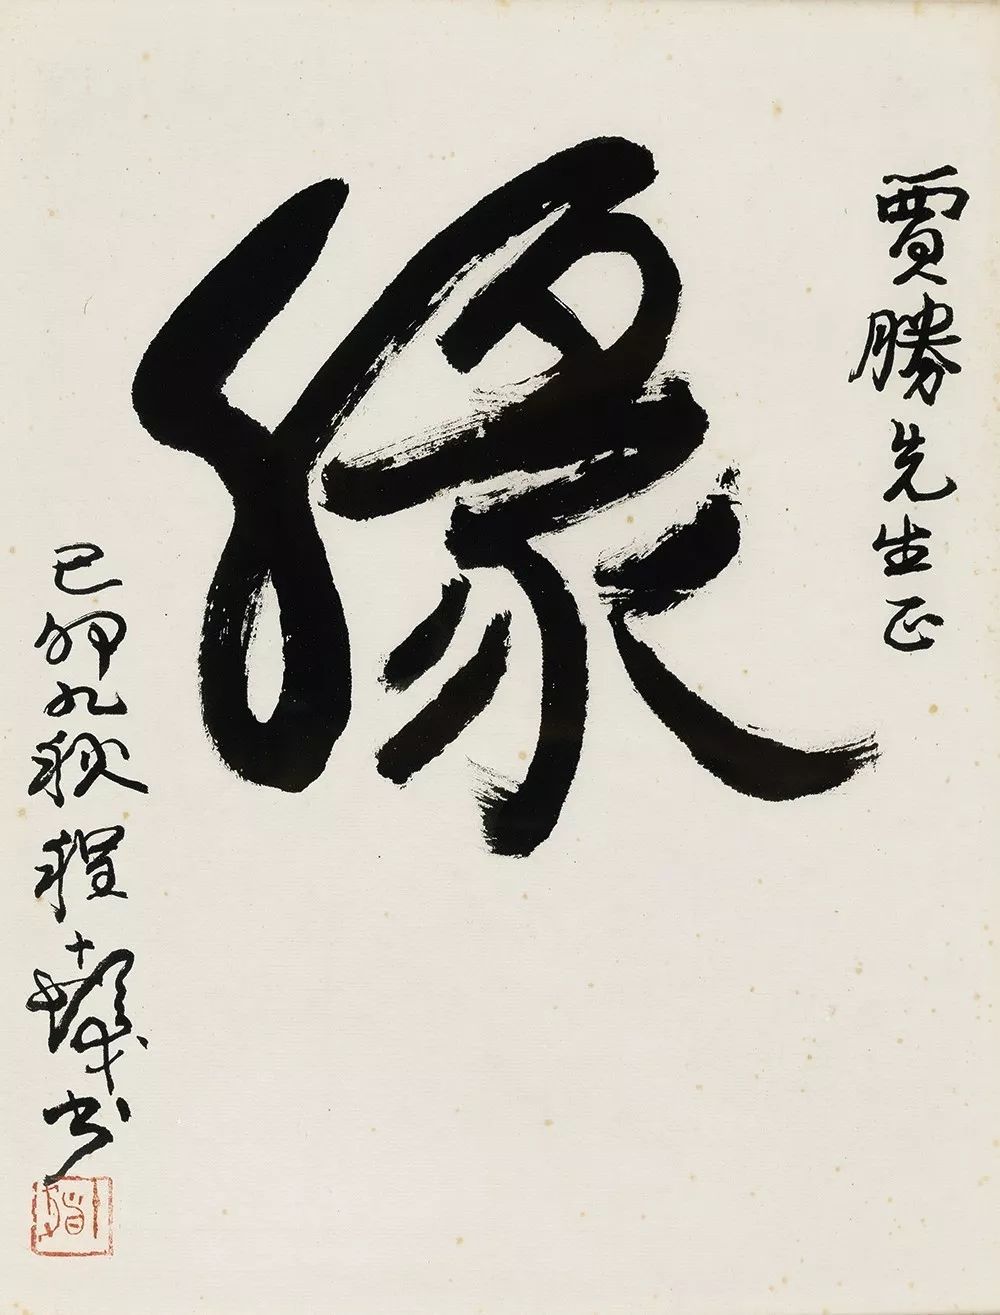 賈勝先生正
緣
己卯九秋程十髮书